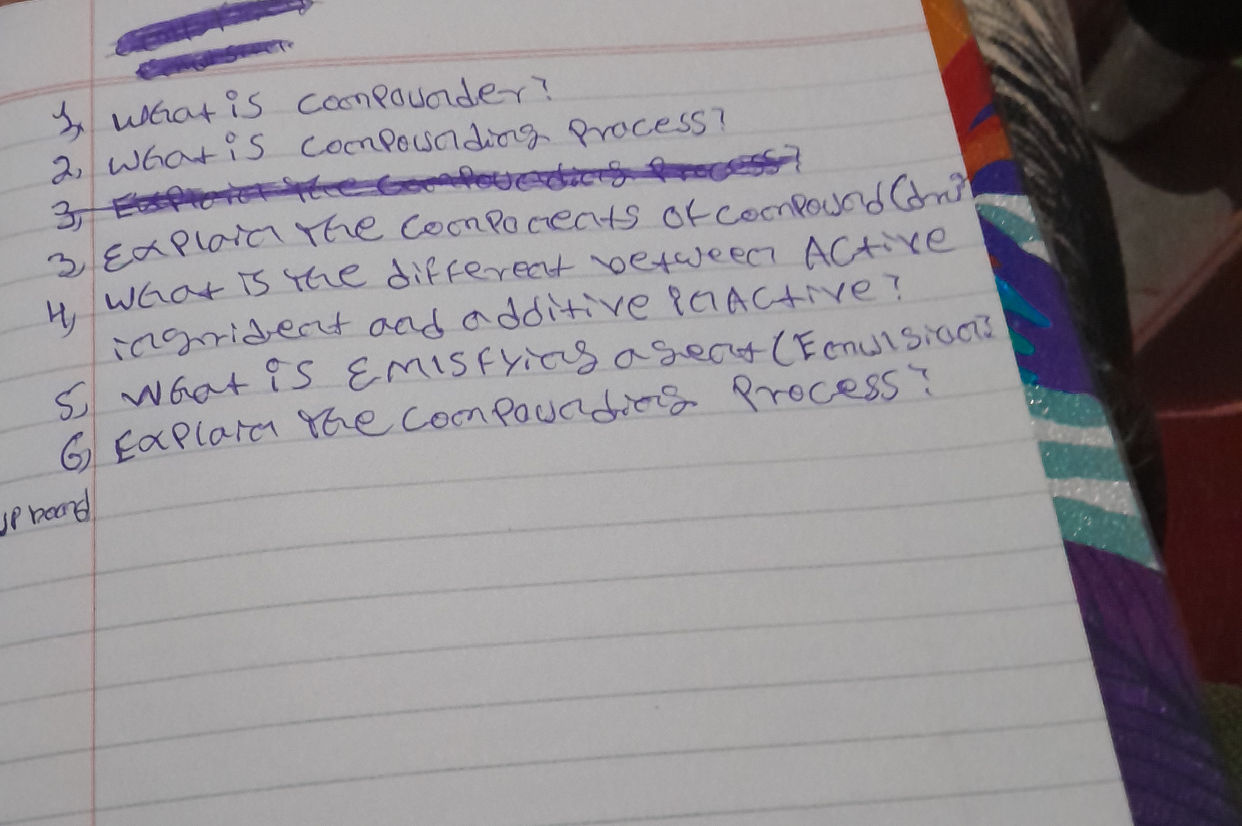 1, what is compounder?
2, what is compounding process?
3, Explain the compounding process?
3, Explain the components of compound (dru
4, what is the different between Active
ingrident and additive inActive?
5, What is Emulsfying agent (Eemulsion?
6, Explain the compounding process?